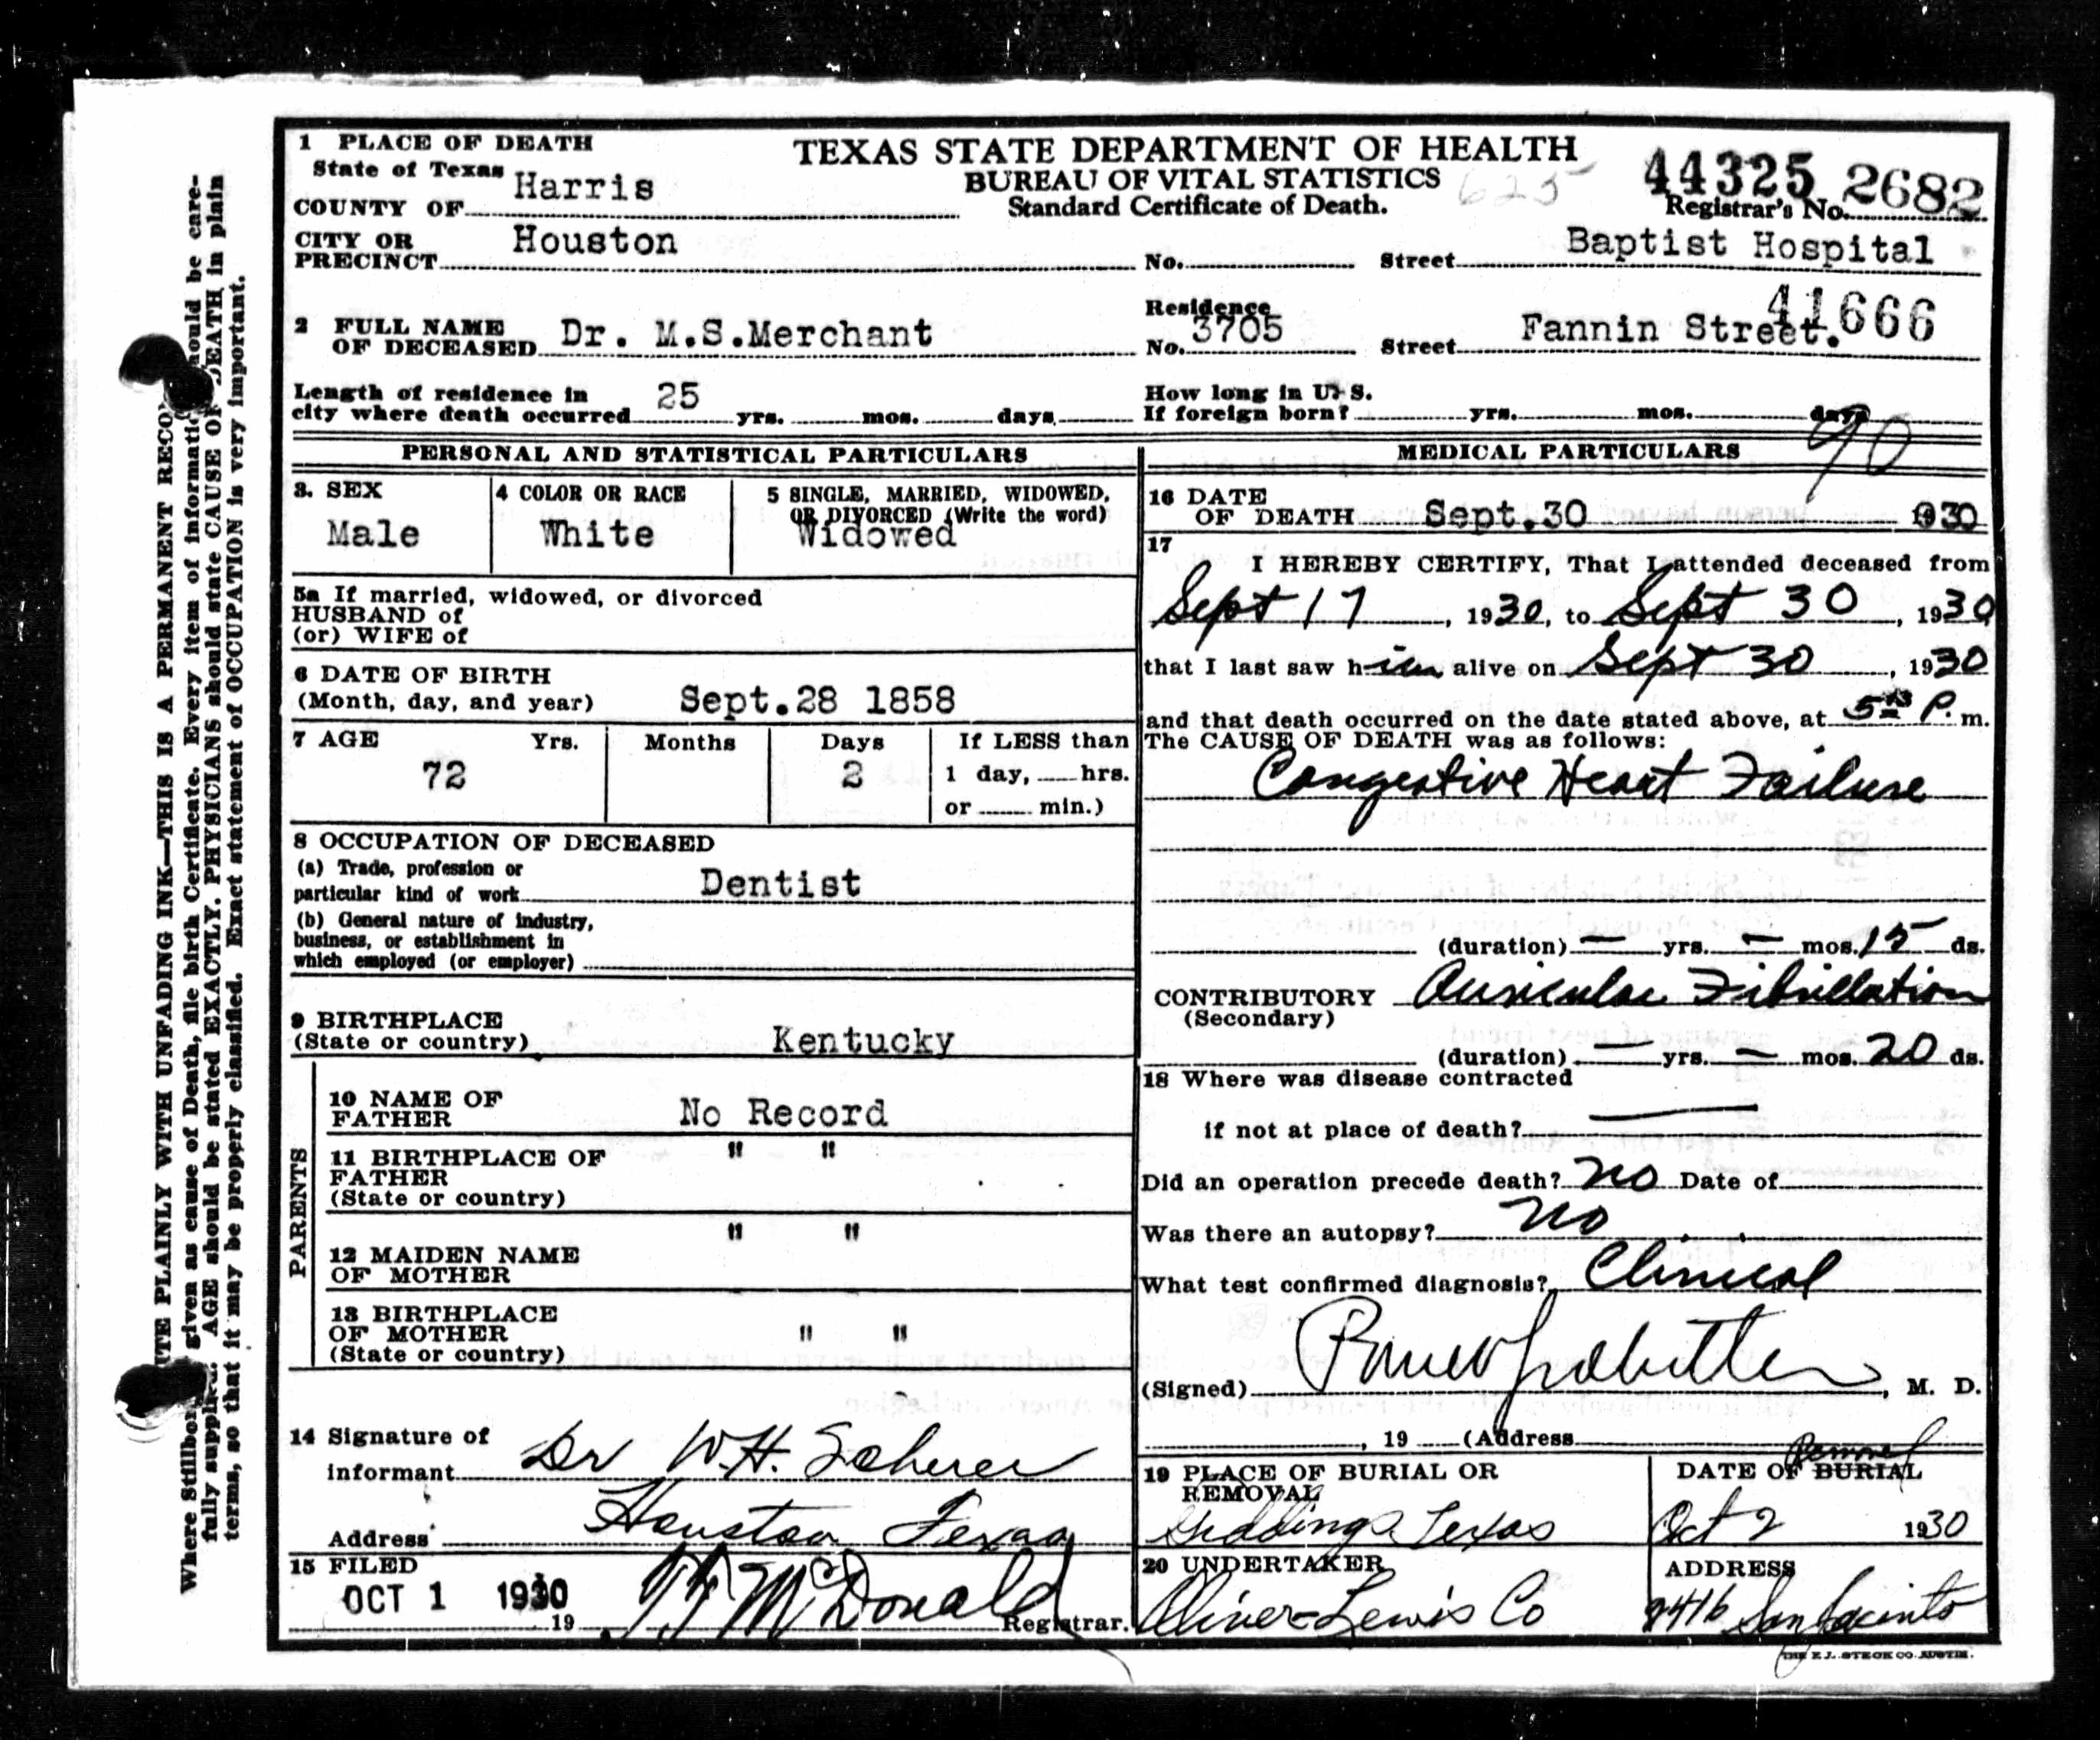 TEXAS STATE DEPARTMENT OF HEALTH
BUREAU OF VITAL STATISTICS
Standard Certificate of Death.
625
44325 2682
Registrar's No.
1 PLACE OF DEATH
State of Texas
COUNTY OF Harris
CITY OR PRECINCT Houston No. Street Baptist Hospital
41666
2 FULL NAME OF DECEASED Dr. M.S.Merchant Residence No. 3705 Street Fannin Street.
Length of residence in city where death occurred 25 yrs. mos. days How long in U. S. If foreign born? yrs. mos. days
90
PERSONAL AND STATISTICAL PARTICULARS
3. SEX Male
4 COLOR OR RACE White
5 SINGLE, MARRIED, WIDOWED, OR DIVORCED (Write the word) Widowed
5a If married, widowed, or divorced
HUSBAND of
(or) WIFE of
6 DATE OF BIRTH
(Month, day, and year) Sept.28 1858
7 AGE Yrs. 72 Months Days 2 If LESS than
1 day, hrs.
or min.)
8 OCCUPATION OF DECEASED
(a) Trade, profession or
particular kind of work Dentist
(b) General nature of industry,
business, or establishment in
which employed (or employer)
9 BIRTHPLACE
(State or country) Kentucky
PARENTS
10 NAME OF FATHER No Record
11 BIRTHPLACE OF FATHER (State or country) " "
12 MAIDEN NAME OF MOTHER " "
13 BIRTHPLACE OF MOTHER (State or country) " "
14 Signature of
informant Dr W.H. Scherer
Address Houston Texas
15 FILED
OCT 1 1930 19 McDonald Registrar.
MEDICAL PARTICULARS
16 DATE OF DEATH Sept.30 1930
17
I HEREBY CERTIFY, That I attended deceased from
Sept 17, 1930, to Sept 30, 1930
that I last saw him alive on Sept 30, 1930
and that death occurred on the date stated above, at 5 P. m.
The CAUSE OF DEATH was as follows:
Congestive Heart Failure
(duration) — yrs. — mos. 15 ds.
CONTRIBUTORY Auricular Fibrillation
(Secondary)
(duration) — yrs. — mos. 20 ds.
18 Where was disease contracted
if not at place of death? —
Did an operation precede death? no Date of
Was there an autopsy? no
What test confirmed diagnosis? Clinical
(Signed) , M. D.
, 19 (Address
19 PLACE OF BURIAL OR REMOVAL
Giddings Texas
DATE OF BURIAL Removal
Oct 2 1930
20 UNDERTAKER
Oliver-Lewis Co
ADDRESS
2416 San Jacinto
THE E.L. STECK CO. AUSTIN.
WRITE PLAINLY WITH UNFADING INK—THIS IS A PERMANENT RECORD
Where Stillborn given as cause of Death, file birth Certificate. Every item of information should be care-
fully supplied. AGE should be stated EXACTLY. PHYSICIANS should state CAUSE OF DEATH in plain
terms, so that it may be properly classified. Exact statement of OCCUPATION is very important.